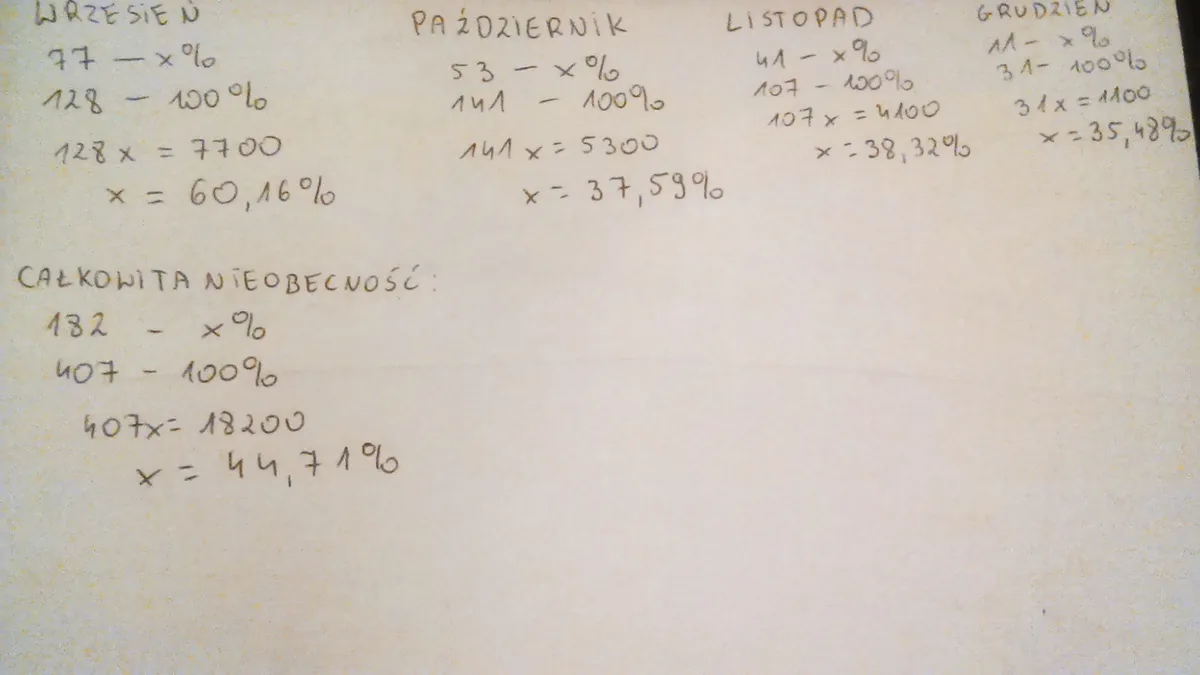 WRZESIEŃ
77 – x%
128 – 100%
128x = 7700
x = 60,16%
PAŹDZIERNIK
53 – x%
141 – 100%
141x = 5300
x = 37,59%
LISTOPAD
41 – x%
107 – 100%
107x = 4100
x = 38,32%
GRUDZIEŃ
11 – x%
31 – 100%
31x = 1100
x = 35,48%
CAŁKOWITA NIEOBECNOŚĆ:
182 – x%
407 – 100%
407x = 18200
x = 44,71%